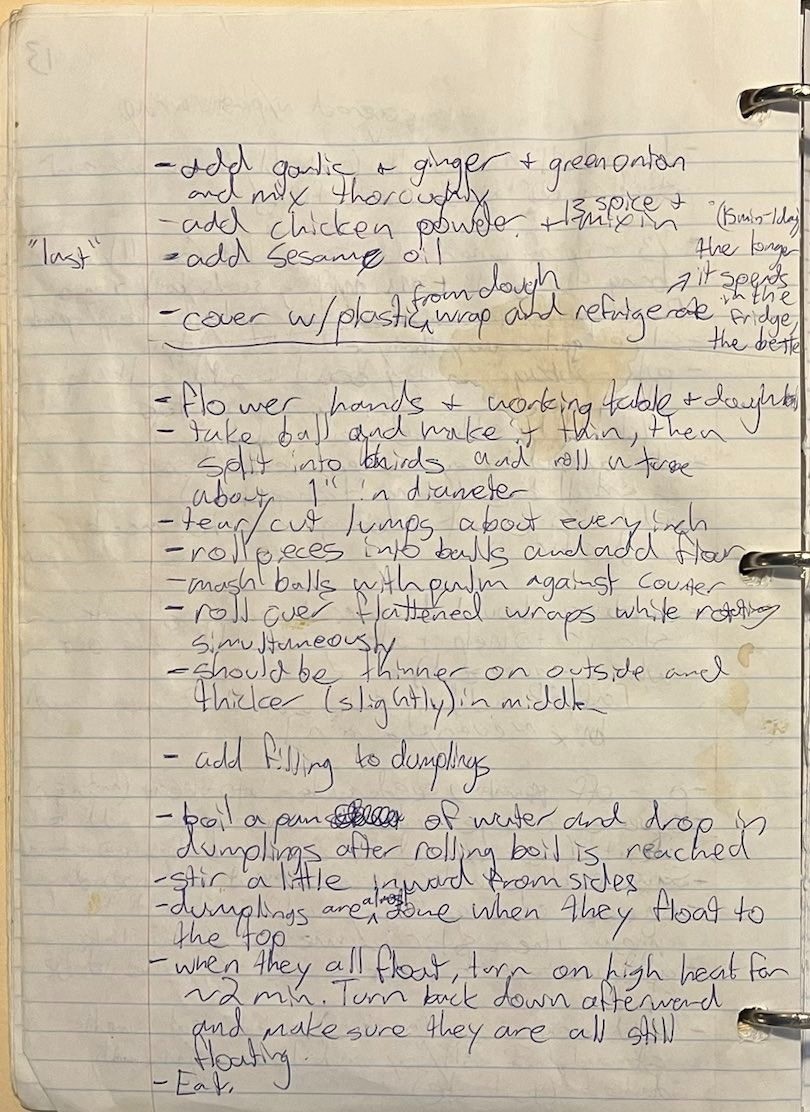 - add garlic + ginger + green onion
and mix thoroughly
- add chicken powder + 13 spice + mix in
"last" - add sesame oil
(15min-1day
the longer
it spends
in the
fridge,
the bette
from dough
- cover w/plastic wrap and refrigerate
- flower hands + working table + dough
- take ball and make it thin, then
split into thirds and roll a tube
about 1" in diameter
- tear/cut lumps about every inch
- roll peces into balls and add flour
- mash balls with palm against counter
- roll over flattened wraps while rotating
simultaneously
- should be thinner on outside and
thicker (slightly) in middle
- add filling to dumplings
- boil a pan of water and drop in
dumplings after rolling boil is reached
- stir a little inward from sides
- dumplings are almost done when they float to
the top
- when they all float, turn on high heat for
~2 min. Turn back down afterward
and make sure they are all still
floating.
- Eat.
13